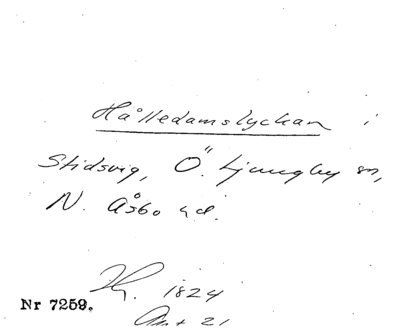 Hålledamslyckan i
Stidsvig, Ö. Ljungby sn,
N. Åsbo hd.
Hy. 1824
Nr 7259.
Ant 21